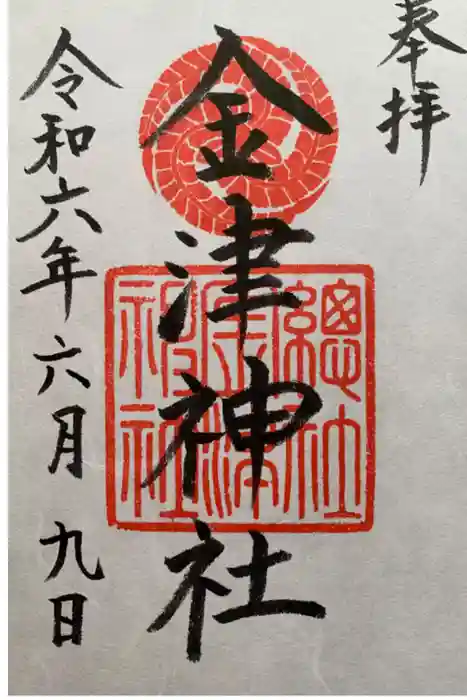 奉拝
金津神社
總社
金津
神社
令和六年六月九日